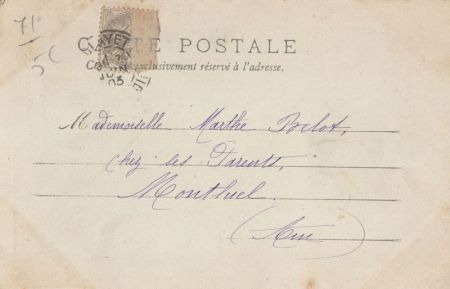 71
5c
CARTE POSTALE
Ce côté exclusivement réservé à l'adresse.
CLAYET
JUIN
05
Mademoiselle Marthe Belot,
chez ses Parents,
Montluel
(Ain)